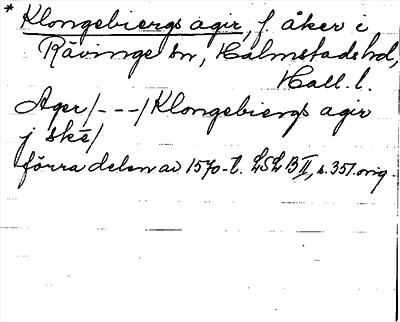 * Klongebiergs ager, f. åker i
Rävinge sn, Halmstads hd,
Hall. l.
Ager/---/Klongebiergs agir
j skē/
förra delen av 1570-t. LSLB II, s. 351. orig.